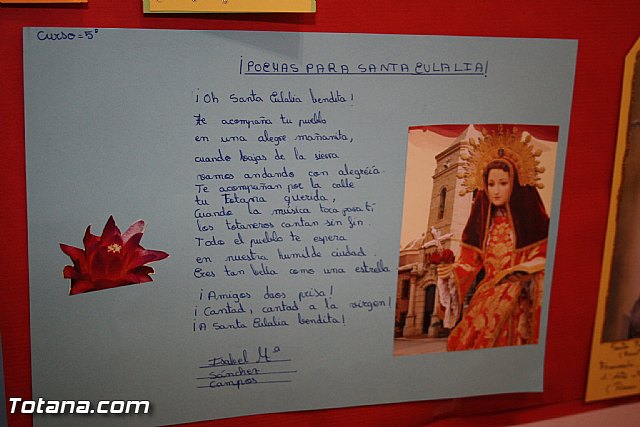 Curso=5º
¡POEMAS PARA SANTA EULALIA!
¡Oh Santa Eulalia bendita!
Te acompaña tu pueblo
en una alegre mañanita,
cuando bajas de la sierra
vamos andando con alegría.
Te acompañan por la calle
tu Totana querida,
Cuando la música toca para tí
los totaneros cantan sin fin.
Todo el pueblo te espera
en nuestra humilde ciudad.
Eres tan bella como una estrella
¡Amigos daos prisa!
¡Cantad, cantad a la virgen!
¡A Santa Eulalia bendita!
Isabel Mª
Sánchez
Campos
Totana.com